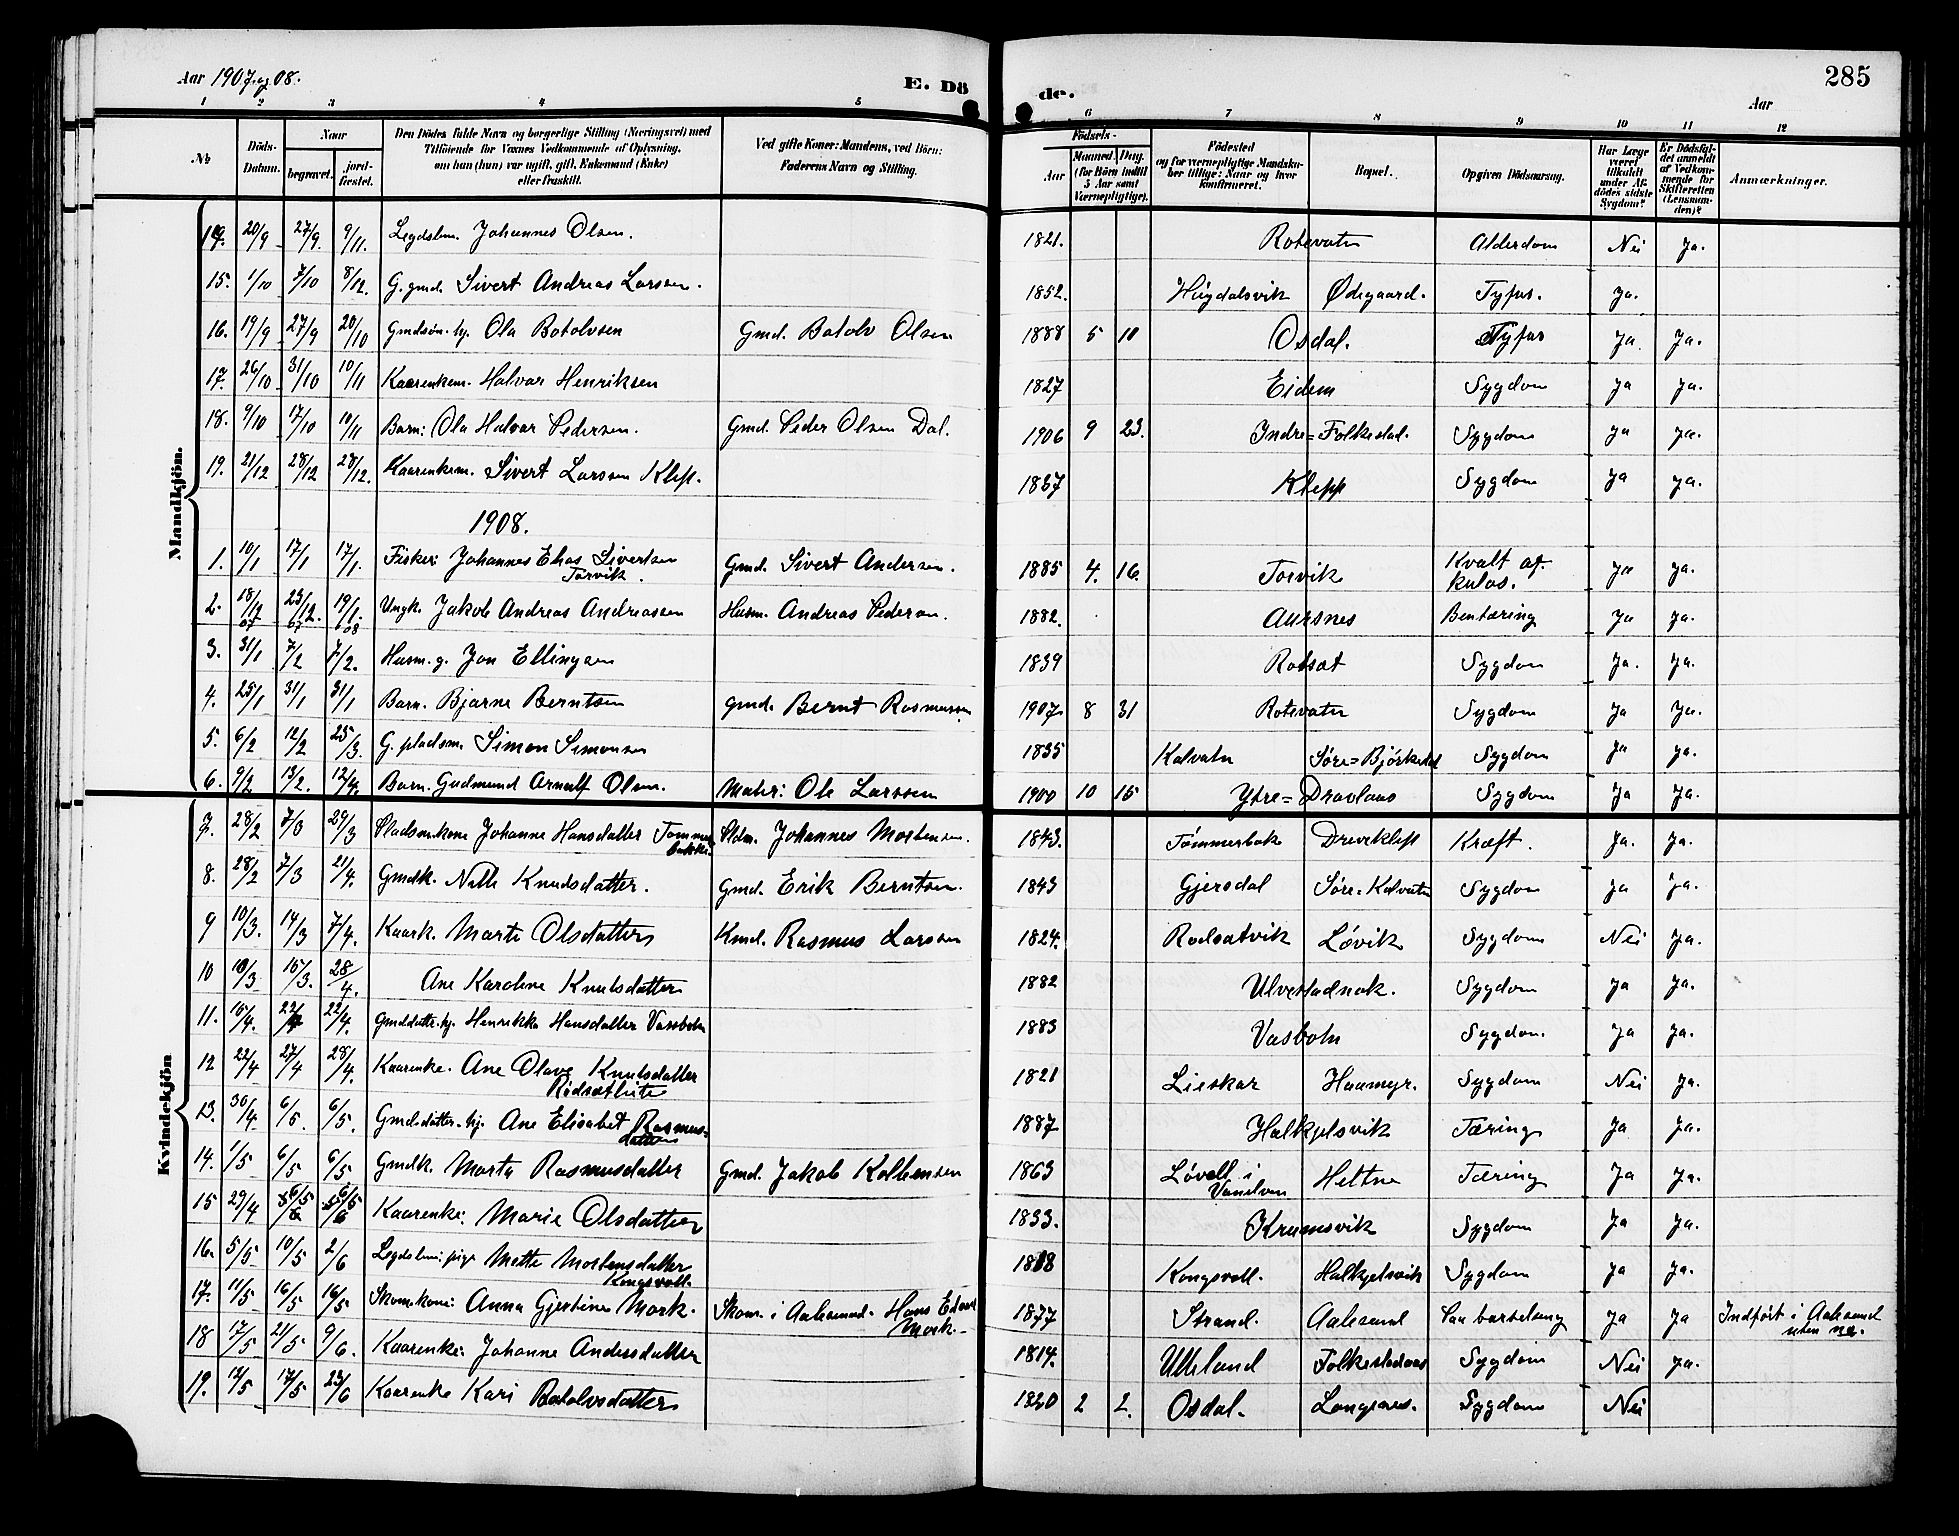 Aar 1907 og 08.
E. Dö de.
Aar
285
1 2 3 4 5 6 7 8 9 10 11 12
No
Döds-Datum.
Naar
begravet.
jord-fæstet.
Den Dödes fulde Navn og borgerlige Stilling (Næringsvei) med
Tilföiende for Voxnes Vedkommende af Oplysning,
om han (hun) var ugift, gift, Enkemand (Enke)
eller fraskilt.
Ved gifte Koner: Mandens, ved Börn:
Faderens Navn og Stilling.
Födsels-
Aar
Maaned. Dag.
(for Börn indtil
5 Aar samt
Værnepligtige).
Födested
og for værnepligtige Mandska-
ber tillige: Naar og hvor
konfirmeret.
Bopæl.
Opgiven Dödsaarsag.
Har Læge
været
tilkaldt
under Af-
dödes sidste
Sygdom?
Er Dödsfal-
det anmeldt
af Vedkom-
mende for
Skifteretten
(Lensman-
den)?
Anmærkninger.
Mandkjön.
14. 20/9 27/9 9/11. Legdslem. Johannes Olsen. 1821. Rotevatn Alderdom Nei Ja.
15. 1/10 7/10 8/12. G. gmd. Sivert Andreas Larssen. 1852. Húgdalsvik Ødegaard. Tyfus. Ja.
16. 19/9 27/9 20/10 Gmdsøn. Ola Botolvsen Gmd. Botolv Olsen 1888 5 10 Osdal. Tyfus Ja Ja.
17. 26/10 31/10 10/11 Kaarenkem. Halvar Henriksen 1827 Eidem Sygdom Ja Ja.
18. 9/10 17/10 10/11 Barn: Ola Halvar Pedersen. Gmd. Peder Olsen Dal. 1906 9 23. Indre=Folkestad. Sygdom Ja Ja.
19. 21/12 28/12 28/12. Kaarenkem. Sivert Larssen Klep. 1837 Klepp Sygdom Ja Ja.
1908.
1. 10/1 17/1 17/1. Fisker: Johannes Elias Sivertsen Torvik. Gmd. Sivert Andersen. 1885 4. 16. Torvik Kvalt af kulos. Ja Ja.
2. 18/12 07 23/12. 07 19/1. 08 Ungk. Jakob Andreas Andreassen Husm. Andreas Pedersen. 1882. Aursnes Bentæring Ja Ja.
3. 31/1 7/2 7/2. Husm. g. Jon Ellingsen 1839 Rotsæt Sygdom Ja. Ja.
4. 25/1 31/1 31/1 Barn. Bjarne Berntsen Gmd. Bernt Rasmussen 1907 8 31 Rotevatn Sygdom Ja Ja.
5. 6/2 12/2 25/3. G. pladsm. Simon Simonsen 1835 Kalvatn Søre=Bjørkedal Sygdom Ja Ja.
6. 9/2 13/2. 12/4. Barn. Gudmund Arnulf Olsen. Matr: Ole Larssen 1900 10 15 Ytre=Dravlaus Sygdom Ja Ja.
Kvindekjön
7. 28/2 7/3 29/3 Pladsm.kone Johanne Hansdatter Tømmerbakke. Pldm. Johannes Mortensen. 1843. Tømmerbak Dreveklep Kræft. Ja. Ja.
8. 28/2 7/3 21/4. Gmdk. Nille Knudsdatter. Gmd. Erik Berntsen. 1843 Gjersdal Søre=Kalvatn Sygdom Ja Ja.
9 10/3. 14/3 7/4. Kaark. Marte Olsdatter Kmd. Rasmus Larssen 1824. Rodsætvik Løvik Sygdom Nei Ja.
10 10/3 15/3. 28/4. Ane Karoline Knutsdatter 1882 Ulvestadnak. Sygdom Ja Ja.
11. 15/4. 22/4 22/4. Gmddatter. Henrikke Hansdatter Vassbotn 1883 Vasbotn Sygdom. Ja Ja.
12 22/4 27/4 28/4. Kaarenke. Ane Olave Knutsdatter Rødsætlite 1821 Lieskar Haamyr. Sygdom Nei Ja.
13. 30/4. 6/5 6/5. Gmdsdatter. Ane Elisabet Rasmus=datter 1887 Halkjelsvik Tæring Ja Ja.
14. 1/5 6/5 6/5. Gmdk. Marta Rasmusdatter Gmd. Jakob Kolbensen 1863 Løvoll i Vanelven Heltne Tæring Ja Ja.
15 29/4 6/5 6/5 Kaarenke: Marie Olsdatter 1833. Krumsvik Sygdom Ja Ja.
16. 5/5 10/5 2/6 Legdslem: pige Mette Mortensdatter Kongsvoll. 1818 Kongsvoll. Halkjelsvik Sygdom Ja Ja.
17. 11/5 16/5 16/5 Skom.kone: Anna Gjertine Mork. Skom. i Aalesund. Hans Edvar Mork. 1877 Strand. Aalesund Paa barselseng Ja Ja Indført i Aalesund uten no.
18 17/5 21/5 9/6. Kaarenke: Johanne Andersdatter 1814. Ulleland Folkestadaas Sygdom Nei Ja.
19. 12/5 17/5 23/6 Kaarenke Kari Botolvsdatter 1820 2 2. Osdal. Langenes. Sygdom Nei